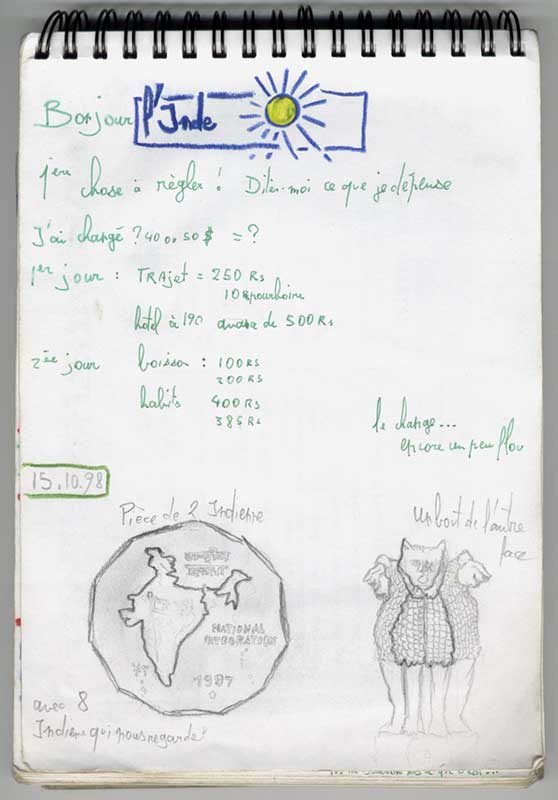 Bonjour l'Inde
1ère chose à règler ! Dites-moi ce que je dépense
J'ai changé ? 40 ou 50 $ = ?
1er jour : TRAjet = 250 Rs
10 Rs pourboire
hôtel à 190 avance de 500 Rs
2ée jour boisson : 100 RS
200 RS
habits 400 RS
385 RS
le change...
encore un peu flou
15.10.98
Pièce de 2 Indienne
un bout de l'autre
face
NATIONAL
INTEGRATION
1987
avec 8
Indiens qui nous regarde